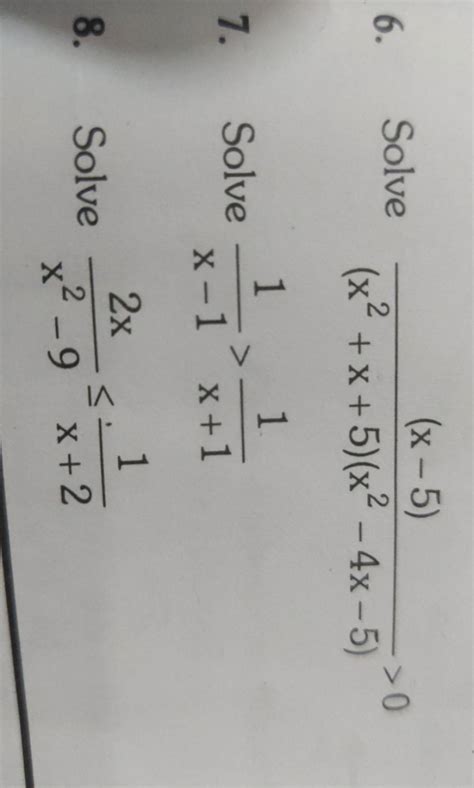 6. Solve (x – 5) / (x² + x + 5)(x² – 4x – 5) > 0
7. Solve 1 / (x – 1) > 1 / (x + 1)
8. Solve 2x / (x² – 9) ≤ 1 / (x + 2)